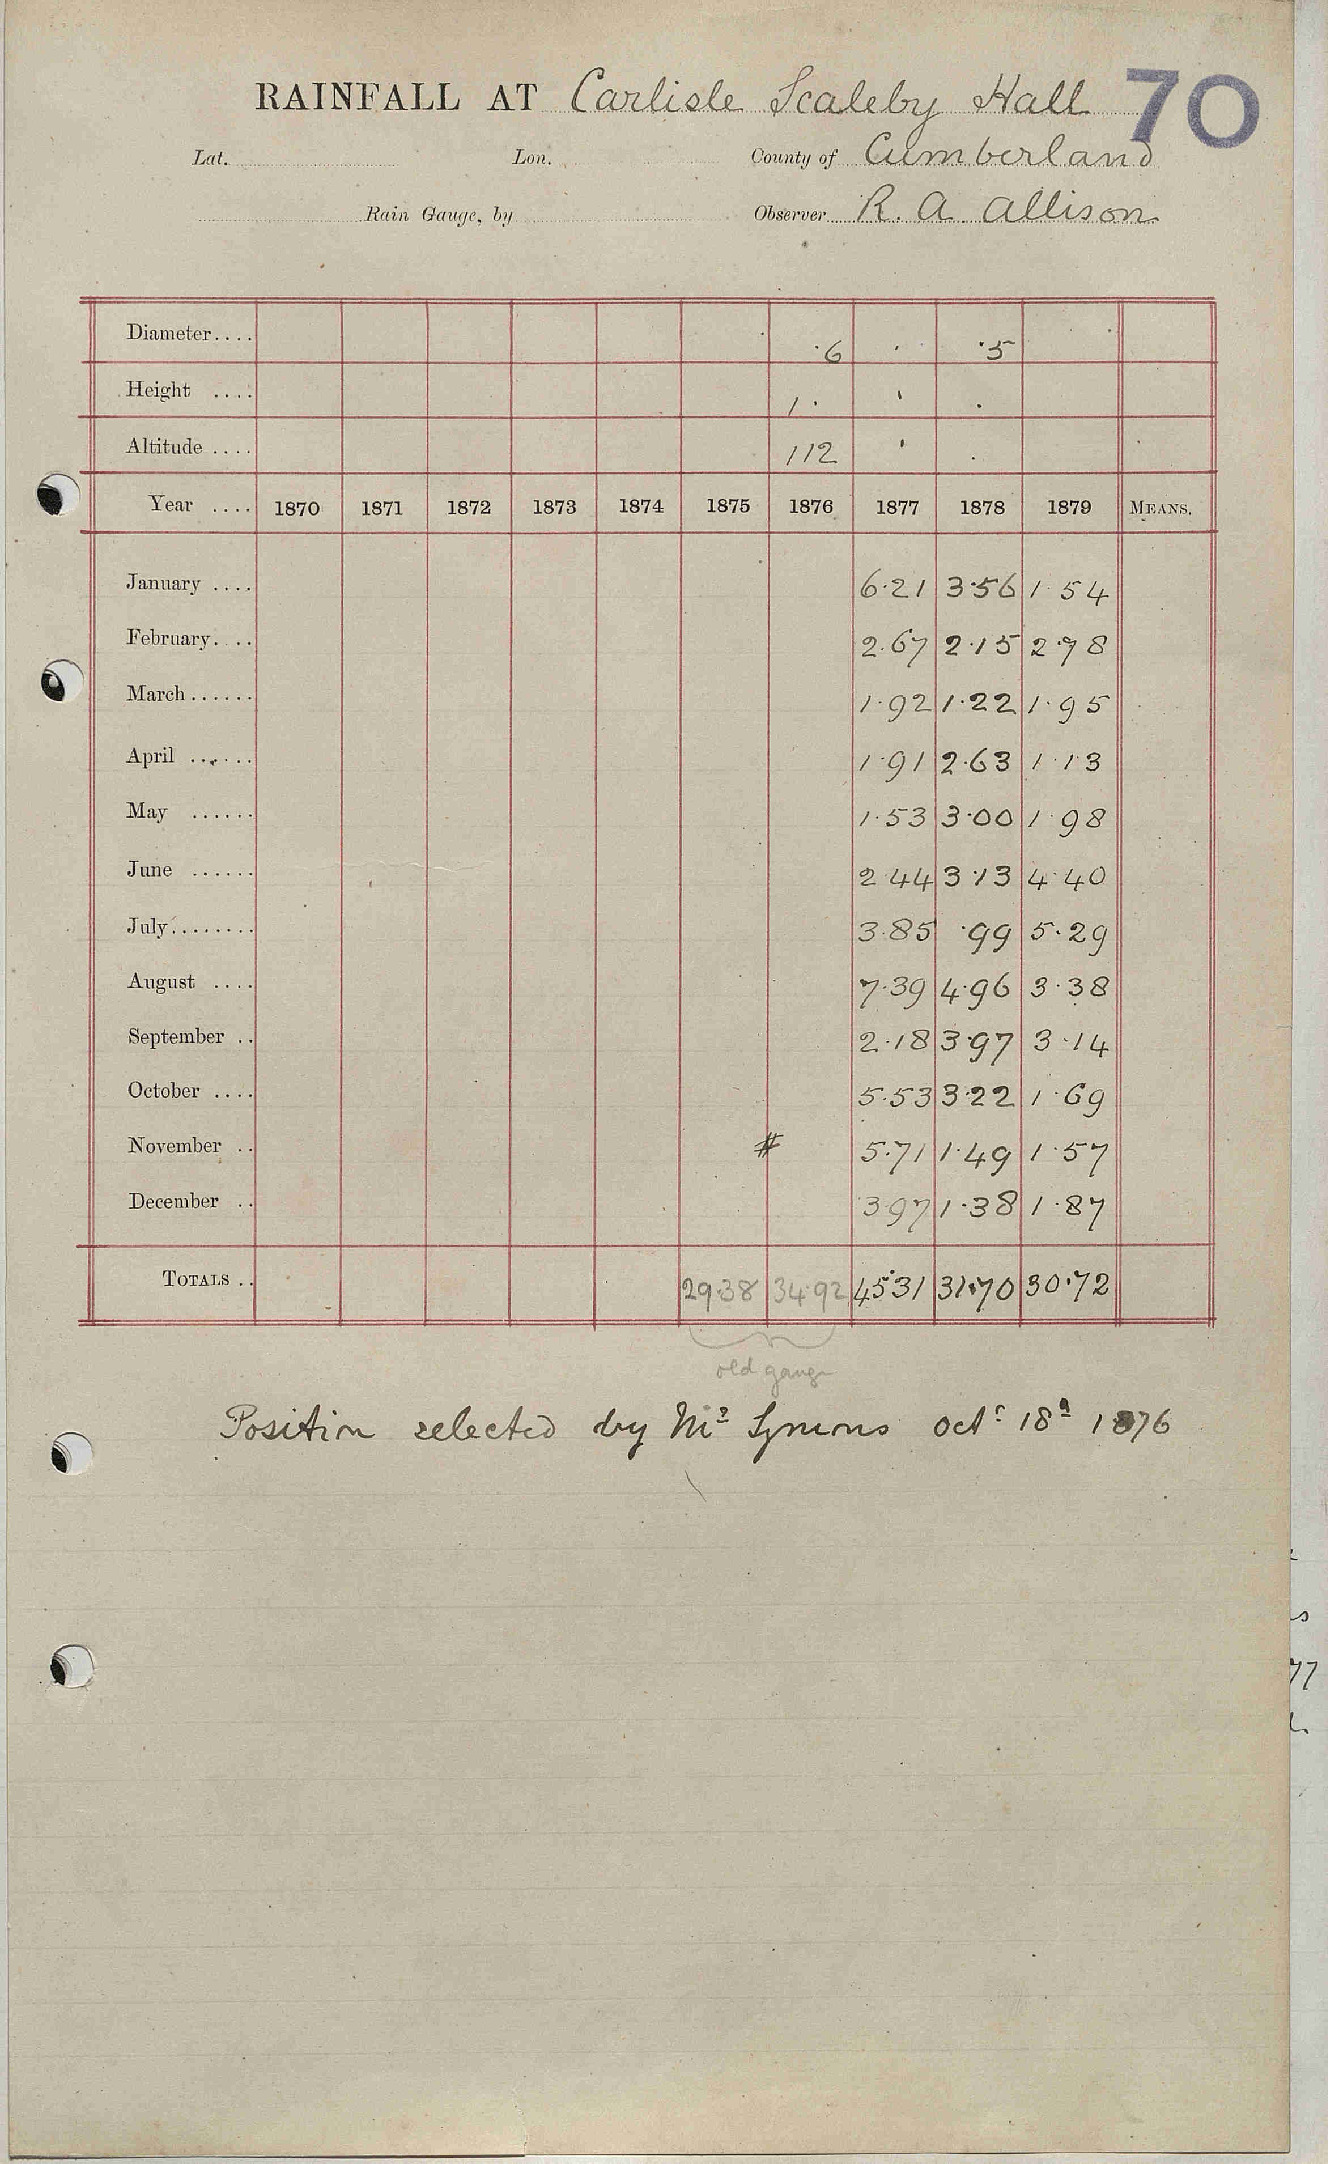 RAINFALL AT Carlisle Scaleby Hall 70
Lat. Lon. County of Cumberland
Rain Gauge, by Observer R. A. Allison
Diameter.... ·6 ·5
Height .... 1·
Altitude .... 112
Year .... 1870 1871 1872 1873 1874 1875 1876 1877 1878 1879 MEANS.
January .... 6·21 3·56 1·54
February.... 2·67 2·15 2·78
March...... 1·92 1·22 1·95
April ...... 1·91 2·63 1·13
May ...... 1·53 3·00 1·98
June ...... 2·44 3·13 4·40
July........ 3·85 ·99 5·29
August .... 7·39 4·96 3·38
September .. 2·18 3·97 3·14
October .... 5·53 3·22 1·69
November .. # 5·71 1·49 1·57
December .. 3·97 1·38 1·87
TOTALS .. 29·38 34·92 45·31 31·70 30·72
old gauge
Position selected by Mr Symons Octr 18th 1876